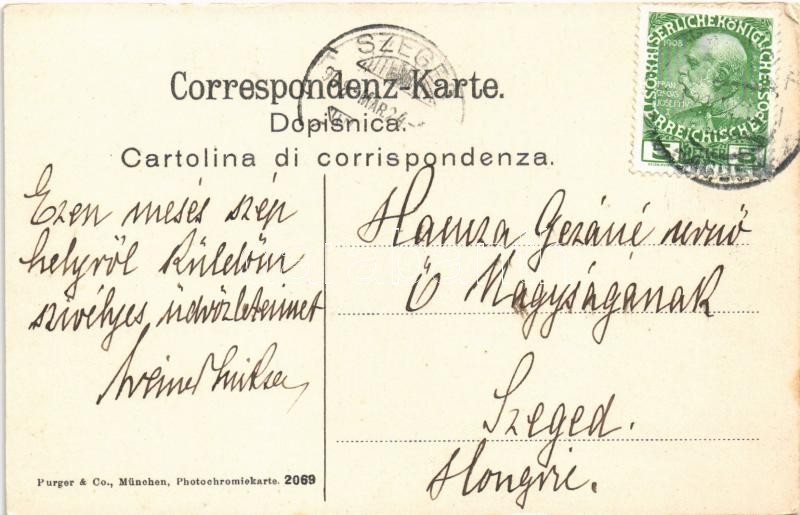 Correspondenz-Karte.
Dopisnica.
Cartolina di corrispondenza.
SZEGED
MAR 24
KAISERLICHE KÖNIGLICHE ÖSTERREICHISCHE POST
1908
FRAN
CISCVS
JOSEPHVS
5 5
Ezen mesés szép
helyről küldöm
szivélyes üdvözleteimet
Hamza Gezáné urnő
Ő Nagyságának
Szeged.
Hongrie.
Purger & Co., München, Photochromiekarte. 2069